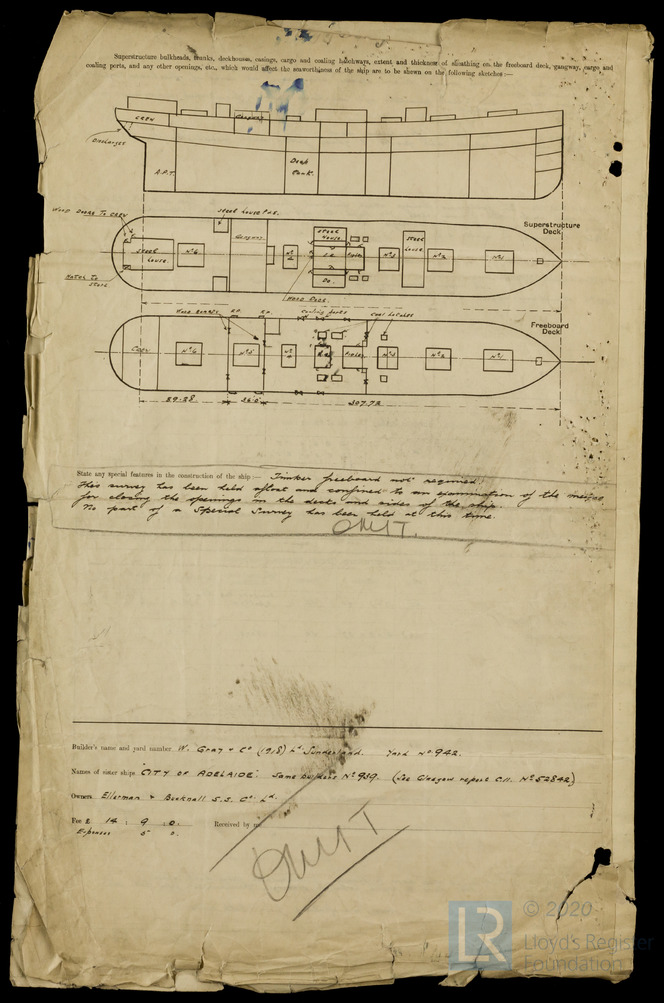 Superstructure bulkheads, trunks, deckhouses, casings, cargo and coaling hatchways, extent and thickness of sheathing on the freeboard deck, gangway, cargo and
coaling ports, and any other openings, etc., which would affect the seaworthiness of the ship are to be shewn on the following sketches:—
CREW
Discharges
A.P.T.
Deep
Tank.
Wood Doors To Crew
Steel House P.&S.
Superstructure
Deck
Steel
House.
Nº6
Steel
House
Steel
House.
Nº3
Nº2
Nº1
Do.
Hatch to
Store
Wood Deck.
Freeboard
Deck
Crew
Nº6
Nº5
Nº3
Nº2
Nº1
89.28
36.0
307.72
State any special features in the construction of the ship:— Timber freeboard not required.
This survey has been held afloat and confined to an examination of the means
for closing the openings in the decks and sides of the ship.
No part of a Special Survey has been held at this time.
OMIT.
Builder's name and yard number W. Gray & Co (1918) Ld Sunderland. Yard No 942.
Names of sister ships "CITY OF ADELAIDE". Same builders Nº 939. (See Glasgow report C.11. Nº 52842)
Owners Ellerman & Bucknall S.S. Co Ld.
Fee £ 14 : 9 : 0.
Received by me
Expenses 5 0.
OMIT
LR
© 2020
Lloyd's Register
Foundation